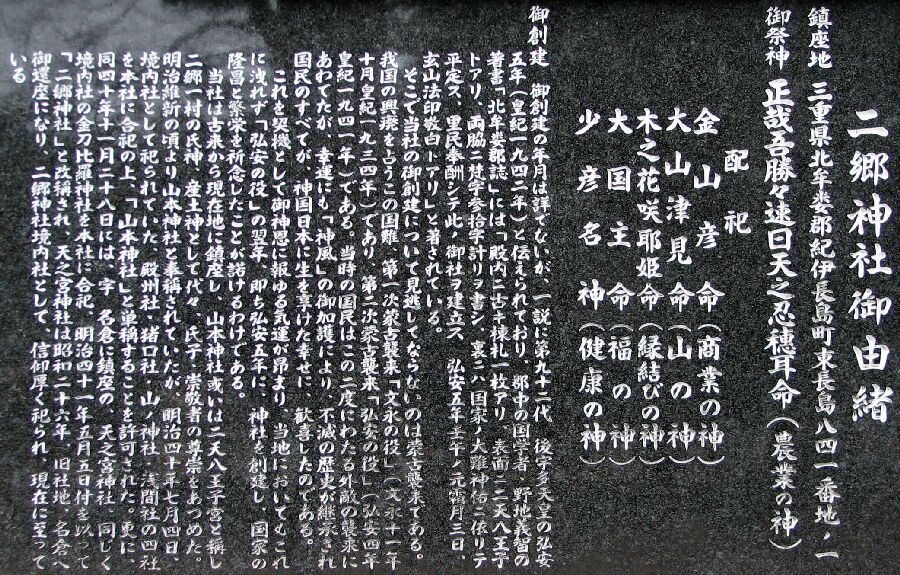 二郷神社御由緒
鎮座地 三重県北牟婁郡紀伊長島町東長島八四一番地ノ一
御祭神 正哉吾勝々速日天之忍穂耳命(農業の神)
配祀
金山彦命(商業の神)
大山津見命(山の神)
木之花咲耶姫命(縁結びの神)
大国主命(福の神)
少彦名神(健康の神)
御創建 御創建の年月は詳でないが、一説に第九十二代 後宇多天皇の弘安
五年(皇紀一九四二年)と伝えられており、郡中の国学者 野地義智の
著書「北牟婁郡誌」には「殿内ニ古キ棟札一枚アリ、表面ニ二天八王子
トアリ、両脇ニ梵字参拾字計リヲ書シ、裏ニハ国家ノ大難神佑ニ依リテ
平定ス、里民奉酬シテ此ノ御社ヲ建立ス 弘安五年壬午ノ元霜月三日、
玄山法印敬白トアリ」と著されている。
そこで当社の御創建について見逃してならないのは蒙古襲来である。
我国の興廃を占うこの国難、第一次蒙古襲来「文永の役」(文永十一年
十月皇紀一九三四年)であり、第二次蒙古襲来「弘安の役」(弘安四年
皇紀一九四一年)である。当時の国民はこの二度にわたる外敵の襲来に
あわてたが、幸運にも「神風」の御加護により、不滅の歴史が継承され
国民のすべてが、神国日本に生を享けた幸せに 歓喜したのである。
これを契機として御神恩に報ゆる気運が昂まり、当地においてもこれ
に洩れず「弘安の役」の翌年、即ち弘安五年に、神社を創建し、国家の
隆昌と繁栄を祈念したことが諾けるわけである。
当社は古来から現在地に鎮座し、山本神社或いは二天八王子宮と称し
二郷一村の氏神、産土神として代々、氏子、崇敬者の尊崇をあつめた。
明治維新の頃より山本神社と奉称されていたが、明治四十年七月四日、
境内社として祀られていた、殿州社・猪口社・山ノ神社・浅間社の四社
を本社に合祀の上、「山本神社」と単称することを許可された。更に、
同四十年十一月二十八日には、字、名倉に鎮座の、天之宮神社 同じく
境内社の金刀比羅神社を本社に合祀、明治四十一年五月五日付を以って
「二郷神社」と改称され、天之宮神社は昭和二十六年、旧社地、名倉へ
御還座になり、二郷神社境内社として、信仰厚く祀られ、現在に至って
いる